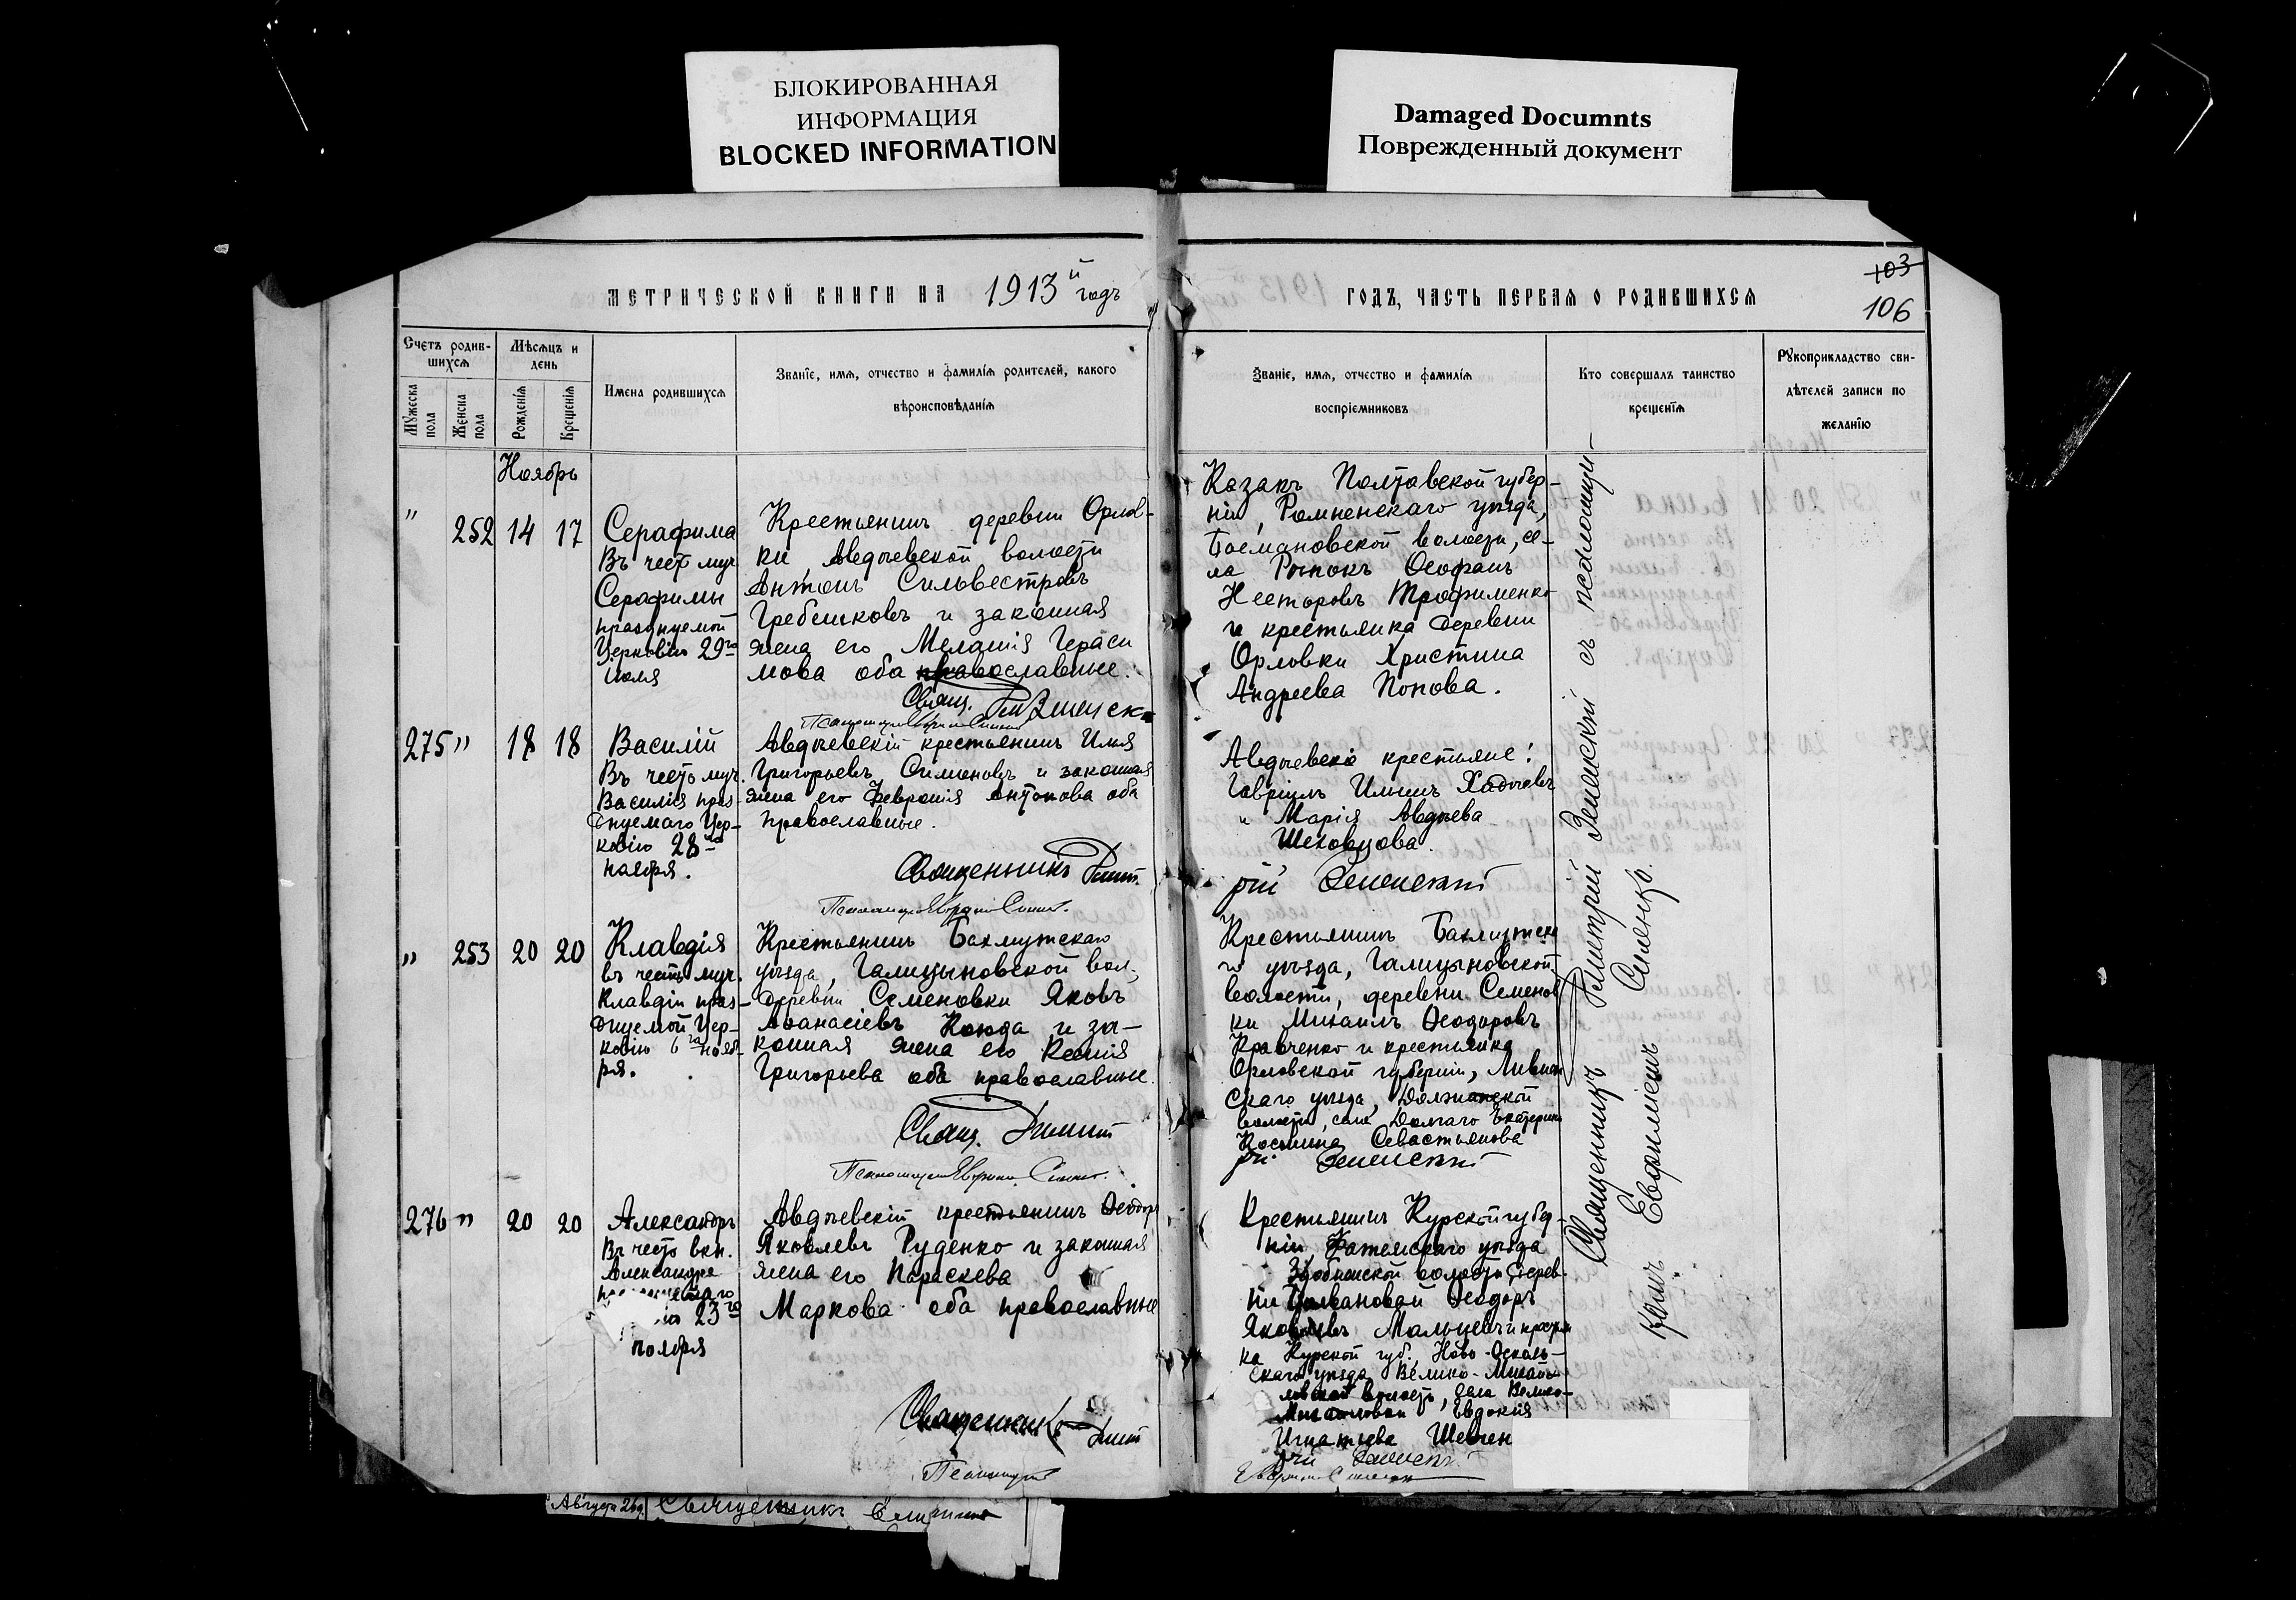 БЛОКИРОВАННАЯ
ИНФОРМАЦИЯ
BLOCKED INFORMATION
Damaged Documnts
Поврежденный документ
МЕТРИЧЕСКОЙ КНИГИ НА 1913й годъ
ГОДЪ, ЧАСТЬ ПЕРВАЯ О РОДИВШИХСЯ
103
106
Счетъ родив-
шихся
Мѣсяцъ и
день
Мужеска
пола
Женска
пола
Рожденія
Крещенія
Имена родившихся
Званіе, имя, отчество и фамилія родителей, какого
вѣроисповѣданія
Званіе, имя, отчество и фамилія
воспріемниковъ
Кто совершалъ таинство
крещенія
Рукоприкладство сви-
дѣтелей записи по
желанію
Ноябрь
" 252 14 17
Серафима
Въ честь муч.
Серафимы
празднуемой
Церковію 29го
Іюля
Крестьянинъ деревни Орлов-
ки, Авдѣевской волости
Антонъ Сильвестровъ
Гребешковъ и законная
жена его Меланія Гераси
мова оба православные.
Свящ.
Казакъ Полтавской губер-
ніи, Роменскаго уѣзда,
волости, се-
ла Ѳеофанъ
Несторовъ Трофименко
и крестьянка деревни
Орловки Христина
Андреева Попова.
275 " 18 18
Василій
Въ честь муч.
Василія праз-
днуемаго Цер-
ковію 28го
ноября.
Авдѣевскій крестьянинъ Илья
Григорьевъ Симоновъ и законная
жена его Февронія Антонова оба
православные.
Священникъ Димит.
Авдѣевскіе крестьяне:
Гавріилъ Ильинъ
и Марія Авдѣева
Шеховцова.
рій Зеленскій
" 253 20 20
Клавдія
въ честь муч.
Клавдіи праз-
днуемой Цер-
ковію 6го нояб-
ря.
Крестьянинъ Бахмутскаго
уѣзда, Галицыновской вол.,
деревни Семеновки Яковъ
Аѳанасіевъ Конда и за-
конная жена его Ксенія
Григорьева оба православные.
Свящ. Димит
Крестьянинъ Бахмутска
го уѣзда, Галицыновской
волости, деревни Семенов
ки Михаилъ Ѳеодоровъ
Кравченко и крестьянка
Орловской губерніи, Ливен
скаго уѣзда, Должанской
волости, села Долгаго Екатерина
Косьмина Севастьянова
рій Зеленскій
276 " 20 20
Александръ
Въ честь вкн.
Александра
23го
ноября
Авдѣевскій крестьянинъ Ѳеодоръ
Яковлевъ Руденко и законная
жена его Параскева
Маркова оба православные
Священникъ Димит
Псаломщикъ
Крестьянинъ Курской губер-
ніи, Фатежскаго уѣзда
волости, дерев-
ни Ѳеодоръ
Яковлевъ Мальцевъ и крестьян
ка Курской губ., Ново-Осколь-
скаго уѣзда, Велико-Михай
ловской волости, села Велико-
Михайловки Евдокія
Игнатьева Шевчен
рій Зеленскій
Священникъ Димитрій Зеленскій съ псаломщи-
комъ Евфиміемъ Сименко.
Августа 26го Священникъ